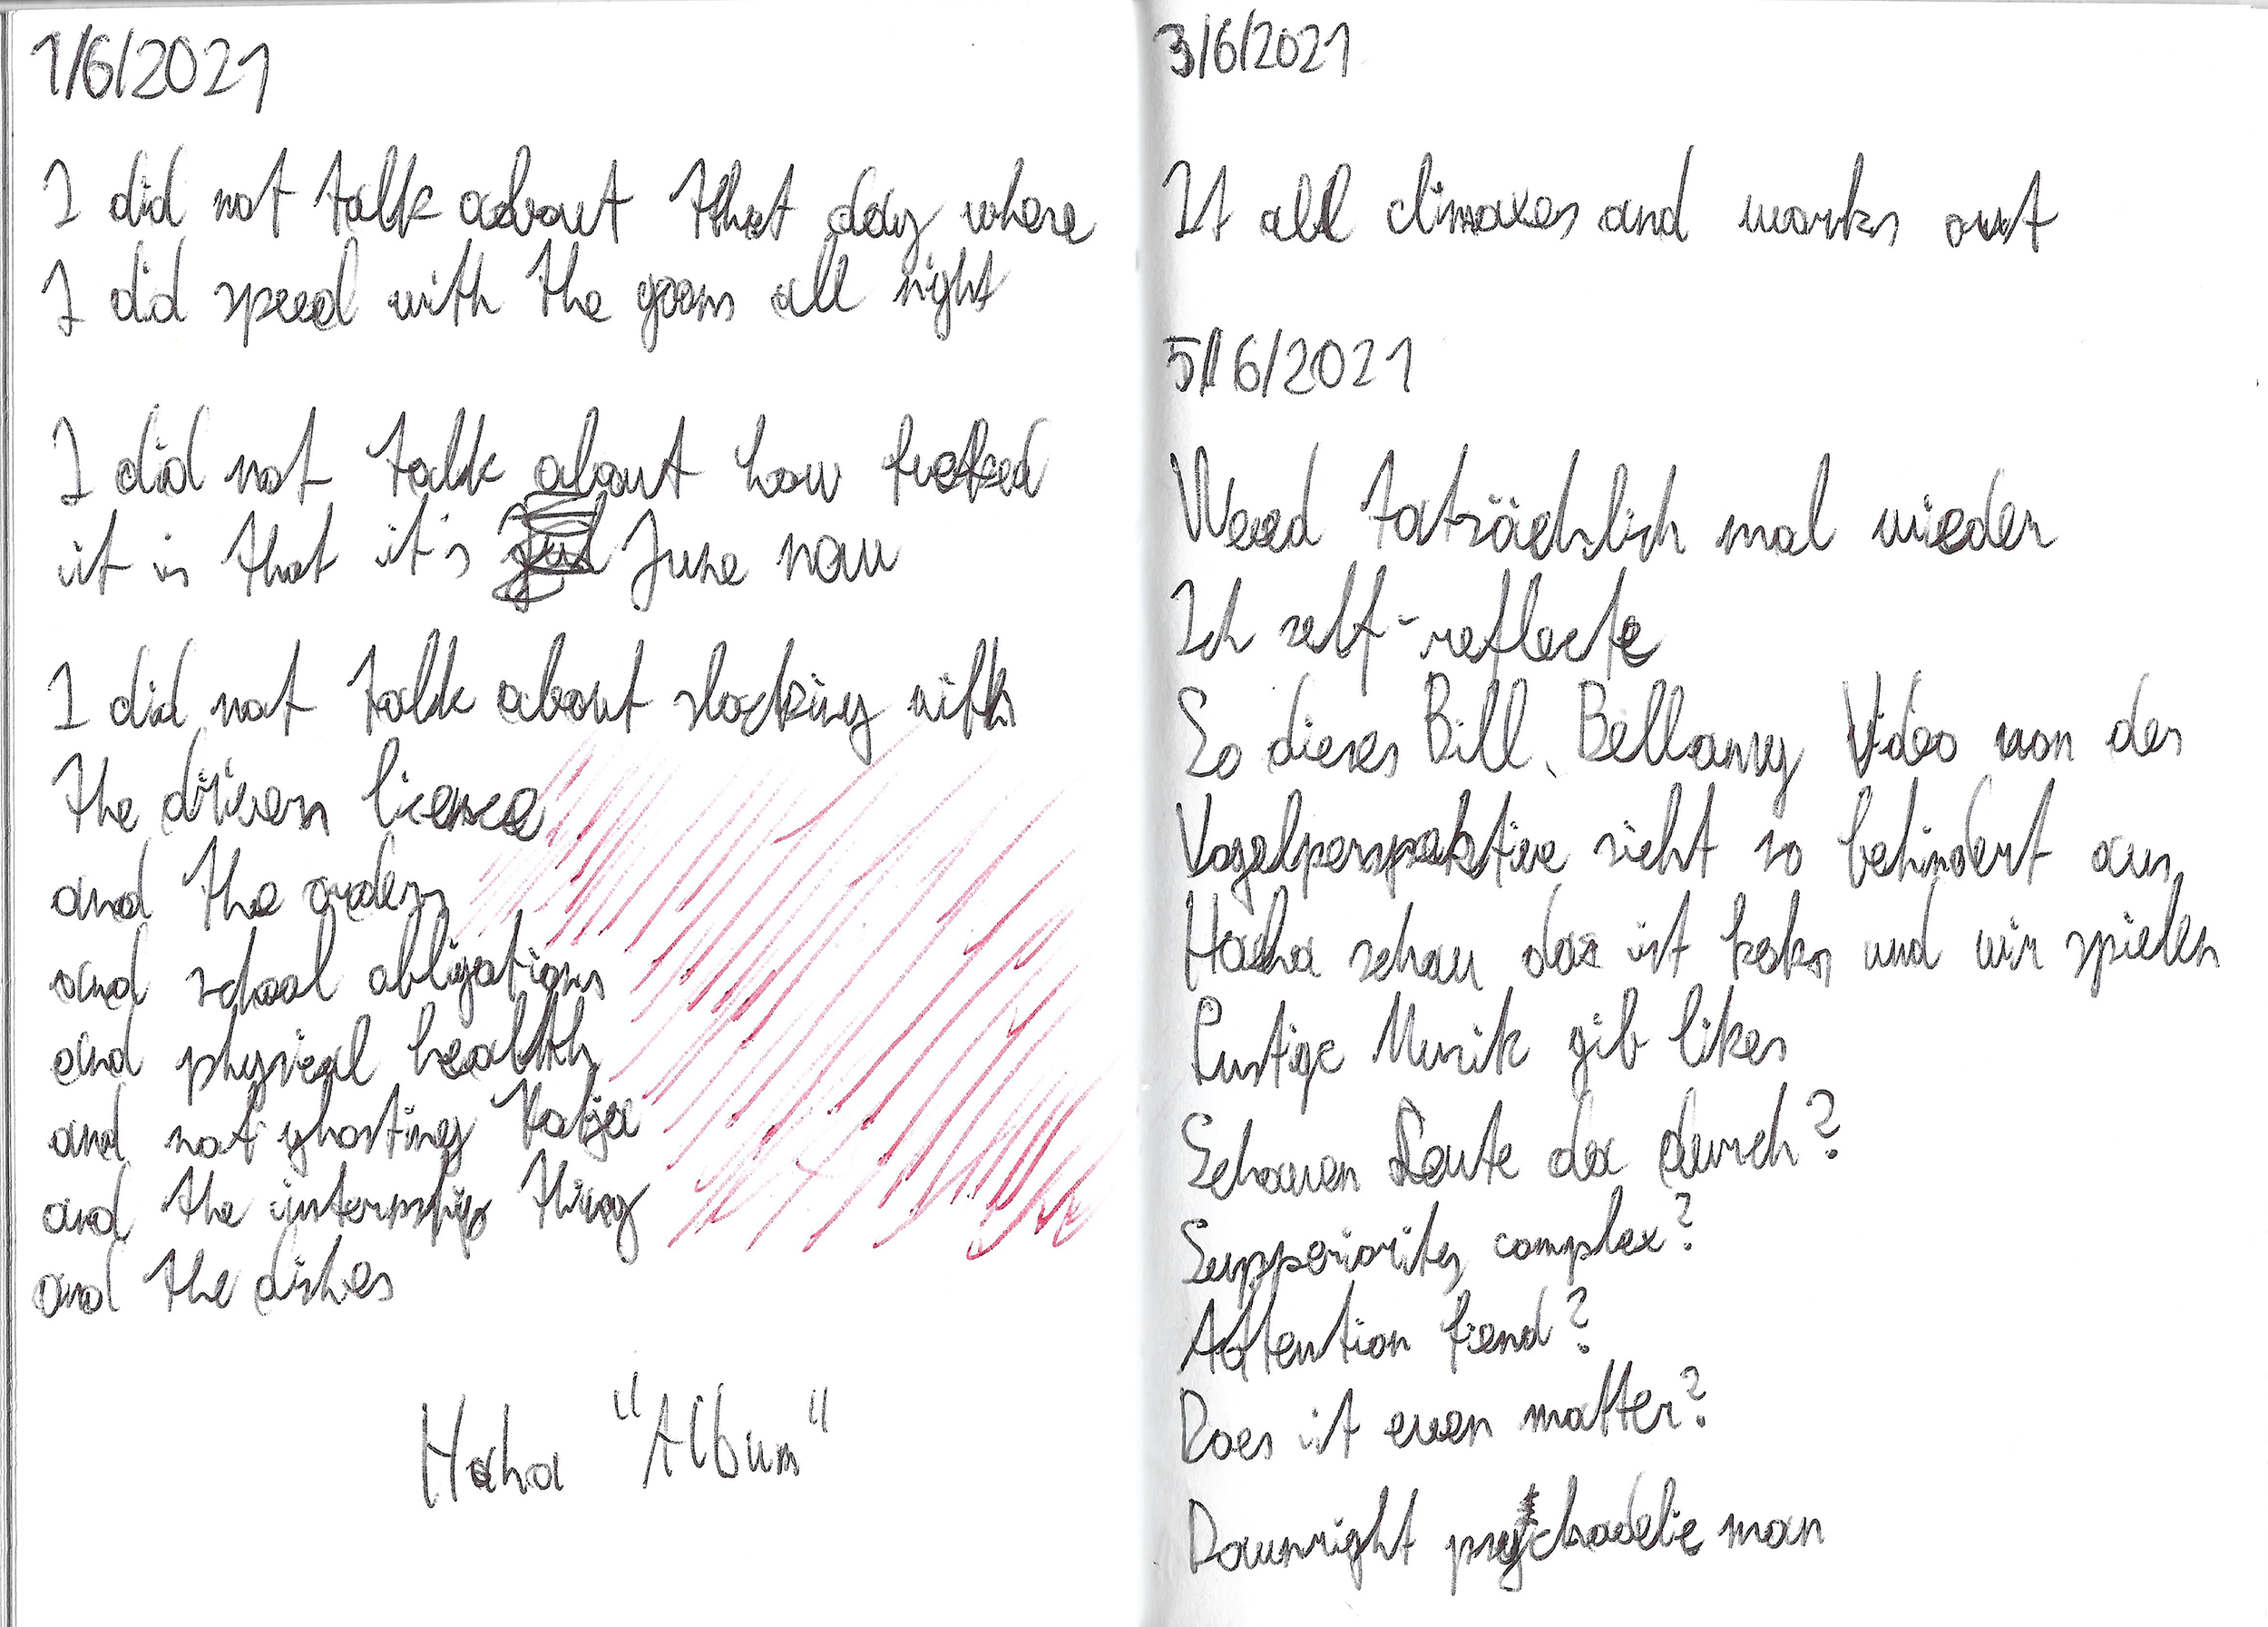 1/6/2021
I did not talk about that day where
I did speed with the goons all night
I did not talk about how fucked
it is that it's June now
I did not talk about slacking with
the drivers license
and the orders
and school obligations
and physical health
and not ghosting Katja
and the internship thing
and the dishes
Haha "Album"
3/6/2021
It all climaxes and works out
5/6/2021
Weed tatsächlich mal wieder
Ich self-reflecte
So dieses Bill Bellamy Video von der
Vogelperspektive sieht so behindert aus
Haha schau das ist keks und wir spielen
Lustige Musik gib likes
Schauen Leute da durch?
Supperiority complex?
Attention fiend?
Does it even matter?
Downright psychadelic man